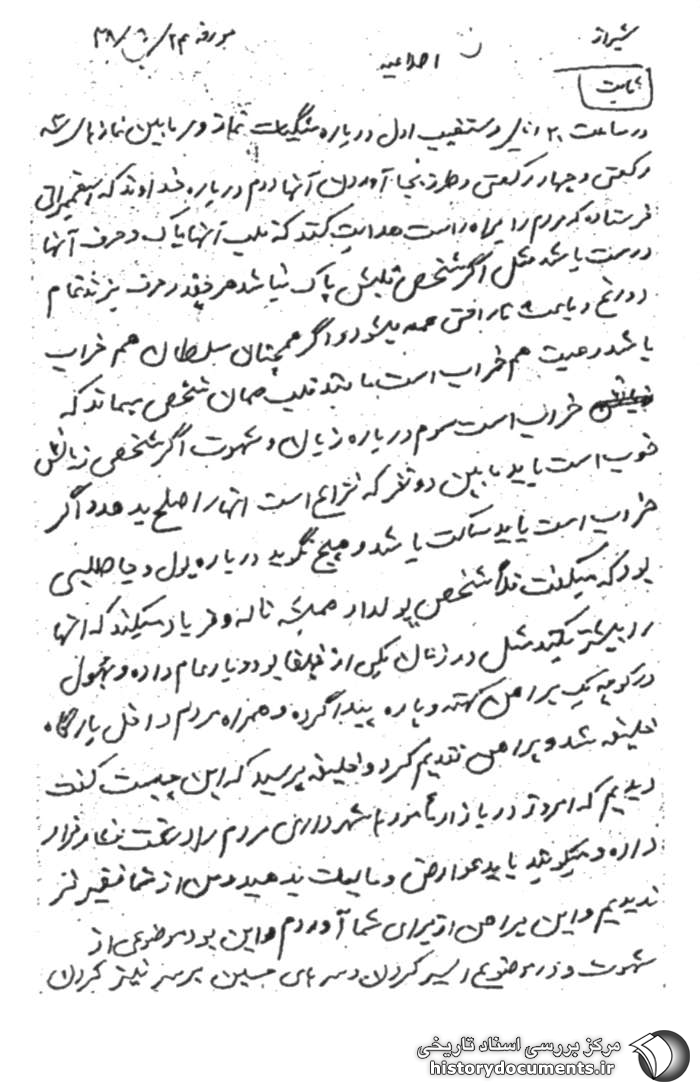 شیراز
مورخه ۲۴/ /۳۸
اطلاعیه
در ساعت ۲۰ دقیقه درباره شکیات نماز و مابین نمازهای سه
رکعتی و چهار رکعتی و طرز بجا آوردن آنها دوم درباره خداوند که پیغمبرانی
فرستاده که مردم را براه راست هدایت کنند که قلب آنها پاک و حرف آنها
درست باشد مثل اگر شخص قلبش پاک نباشد هر چقدر حرف بزند تمام
دروغ و باعث ناراحتی همه میشود و اگر همچنان سلطان هم خراب
باشد رعیت هم خراب است مانند قلب همان شخص میماند که
خراب است سوم درباره زبان و شهوت اگر شخصی زبانش
خوب است باید مابین دو نفر که نزاع است آنها را صلح بدهد و اگر
خراب است باید ساکت باشد و هیچ نگوید درباره پول و جاه طلبی
بود که میگفت مثلا شخص پولدار همیشه ناله و فریاد میکند که آنها
را بیشتر کنید مثل در زمان یکی از خلفا بود و بار عام داده و بهلول
در کوچه یک پیراهن کهنه و پاره پیدا کرده و همراه مردم داخل بارگاه
خلیفه شد و پیراهن تقدیم کرد و خلیفه پرسید که این چیست گفت
دیدیم که امروز در بازار مأمورها شهرداری مردم را در تحت فشار قرار
داده و میگویند باید عوارض و مالیات بدهید و من از شما فقیرتر
ندیدیم و این پیراهن از برای شما آوردم و این بود موضوعی از
شهوت و در موضوع اسیر کردن و سرهای حسین بر سر نیزه کردن
مرکز بررسی اسناد تاریخی
historydocuments.ir